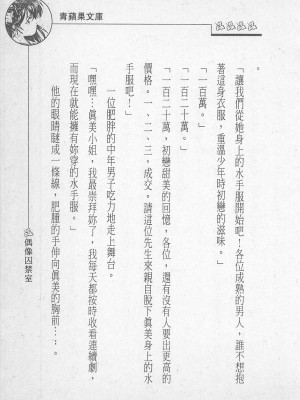 青蘋果文庫
。
「讓我們從她身上的水手服開始吧！各位成熟的男人，誰不想抱
著這身衣服，重溫少年時初戀的滋味。」
「一百萬。」
「一百二十萬。」
「一百二十萬，初戀甜美的回憶，各位，還有沒有人要出更高的
價格。一、二、三，成交。請這位先生來親自脫下眞美身上的水
手服吧！」
一位肥胖的中年男子吃力地走上舞台。
「嘿嘿…眞美小姐，我最崇拜妳了，我每天都按時收看連續劇，
而現在就能擁有妳穿的水手服。」
他的眼睛瞇成一條線，肥腫的手伸向眞美的胸前……。
偶像囚禁室